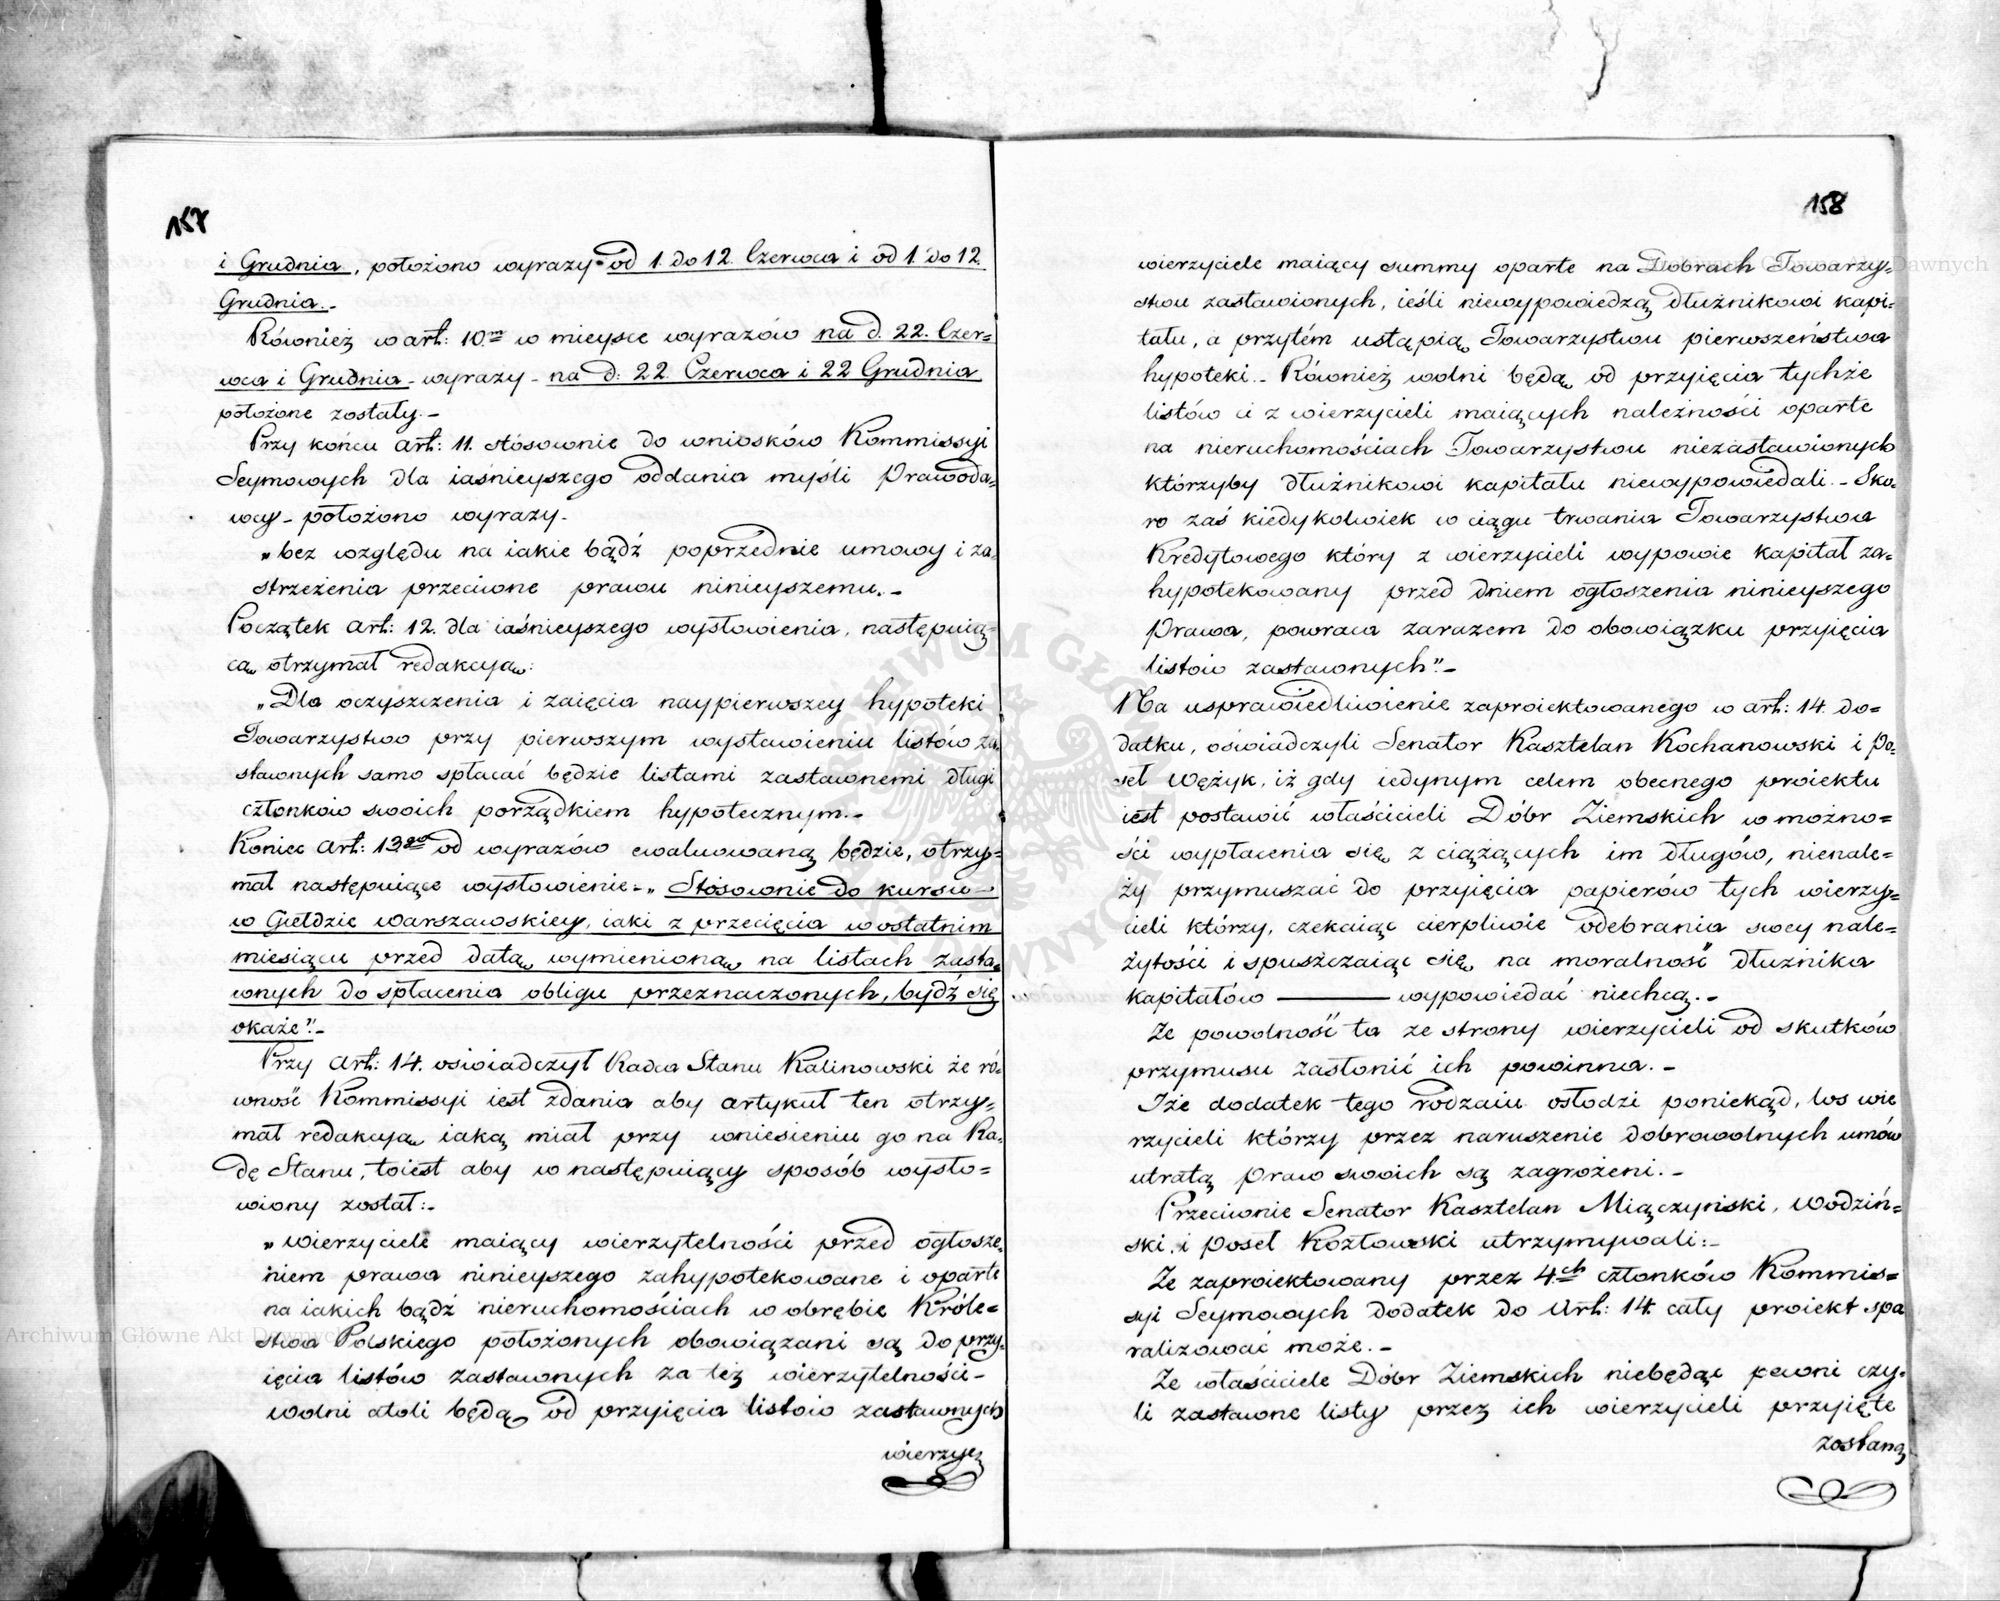 157
i Grudnia, położono wyrazy od 1. do 12. Czerwca i od 1 do 12.
Grudnia.-
Również w art: 10.m w mieysce wyrazów na d. 22. Czer=
wca i Grudnia - wyrazy - na d: 22. Czerwca i 22 Grudnia
położone zostały.-
Przy końcu art: 11. stósownie do wniosków Kommissyi
Seymowych dla iaśnieyszego oddania myśli Prawoda=
wcy - położono wyrazy.
„bez względu na iakie bądź poprzednie umowy i za=
strzeżenia przeciwne prawu ninieyszemu.-
Początek art: 12. dla iaśnieyszego wysłowienia, następuią=
cą otrzymał redakcyą:
„Dla oczyszczenia i zaięcia naypierwszey hypoteki
Towarzystwo przy pierwszym wystawieniu listów za=
stawnych samo spłacać będzie listami zastawnemi długi
członków swoich porządkiem hypotecznym.-
Koniec art: 13go od wyrazów ewaluowaną będzie, otrzy=
mał następuiące wysłowienie - „Stósownie do kursu
w Giełdzie Warszawskiey, iaki z przecięcia w ostatnim
miesiącu przed datą wymienioną na listach zasta=
wnych do spłacenia obligu przeznaczonych, bydź się
okaże".-
Przy art: 14. oświadczył Radca Stanu Kalinowski że ró=
wność Kommissyi iest zdania aby artykuł ten otrzy=
mał redakcyą iaką miał przy wniesieniu go na Ra=
dę Stanu, toiest aby w następuiący sposób wysło=
wiony został:-
„Wierzyciele maiący wierzytelności przed ogłosze=
niem prawa ninieyszego zahypotekowane i oparte
na iakich bądź nieruchomościach w obrębie Króle=
stwa Polskiego położonych obowiązani są do przy=
ięcia listów zastawnych za też wierzytelności -
wolni atoli będą od przyięcia listów zastawnych
wierzyci
158
wierzyciele maiący summy oparte na Dobrach Towarzy=
stwu zastawionych, ieśli niewypowiedzą dłużnikowi kapi=
tału, a przytém ustąpią Towarzystwu pierwszeństwa
hypoteki.- Również wolni będą od przyięcia tychże
listów ci z wierzycieli maiących należności oparte
na nieruchomościach Towarzystwu niezastawionych
którzyby dłużnikowi kapitału niewypowiedali.- Sko=
ro zaś kiedykolwiek w ciągu trwania Towarzystwa
Kredytowego który z wierzycieli wypowie kapitał za=
hypotekowany przed dniem ogłoszenia ninieyszego
Prawa, powraca zarazem do obowiązku przyięcia
listów zastawnych".-
Na usprawiedliwienie zaproiektowanego w art: 14. do=
datku, oświadczyli Senator Kasztelan Kochanowski i Po=
seł Wężyk, iż gdy iedynym celem obecnego proiektu
iest postawić właścicieli Dóbr Ziemskich w możno=
ści wypłacenia się z ciążących im długów, nienale=
ży przymuszać do przyięcia papierów tych wierzy=
cieli którzy, czekaiąc cierpliwie odebrania swey nale=
żytości i spuszczaiąc się na moralność dłużnika
kapitałów ——— wypowiedać niechcą.-
Że powolność ta ze strony wierzycieli od skutków
przymusu zasłonić ich powinna.-
Iże dodatek tego rodzaiu osłodzi poniekąd, los wie
rzycieli którzy przez naruszenie dobrowolnych umów
utratą praw swoich są zagrożeni.-
Przeciwnie Senator Kasztelan Miączyński, Wodziń=
ski, i poseł Kozłowski utrzymywali:-
Że zaproiektowany przez 4ch członków Kommis=
syi Seymowych dodatek do Art: 14. cały proiekt spa
ralizować może.-
Że właściciele Dóbr Ziemskich niebędąc pewni czy=
li zastawne listy przez ich wierzycieli przyięte
zostaną
Archiwum Główne Akt Dawnych
Archiwum Główne Akt Dawnych